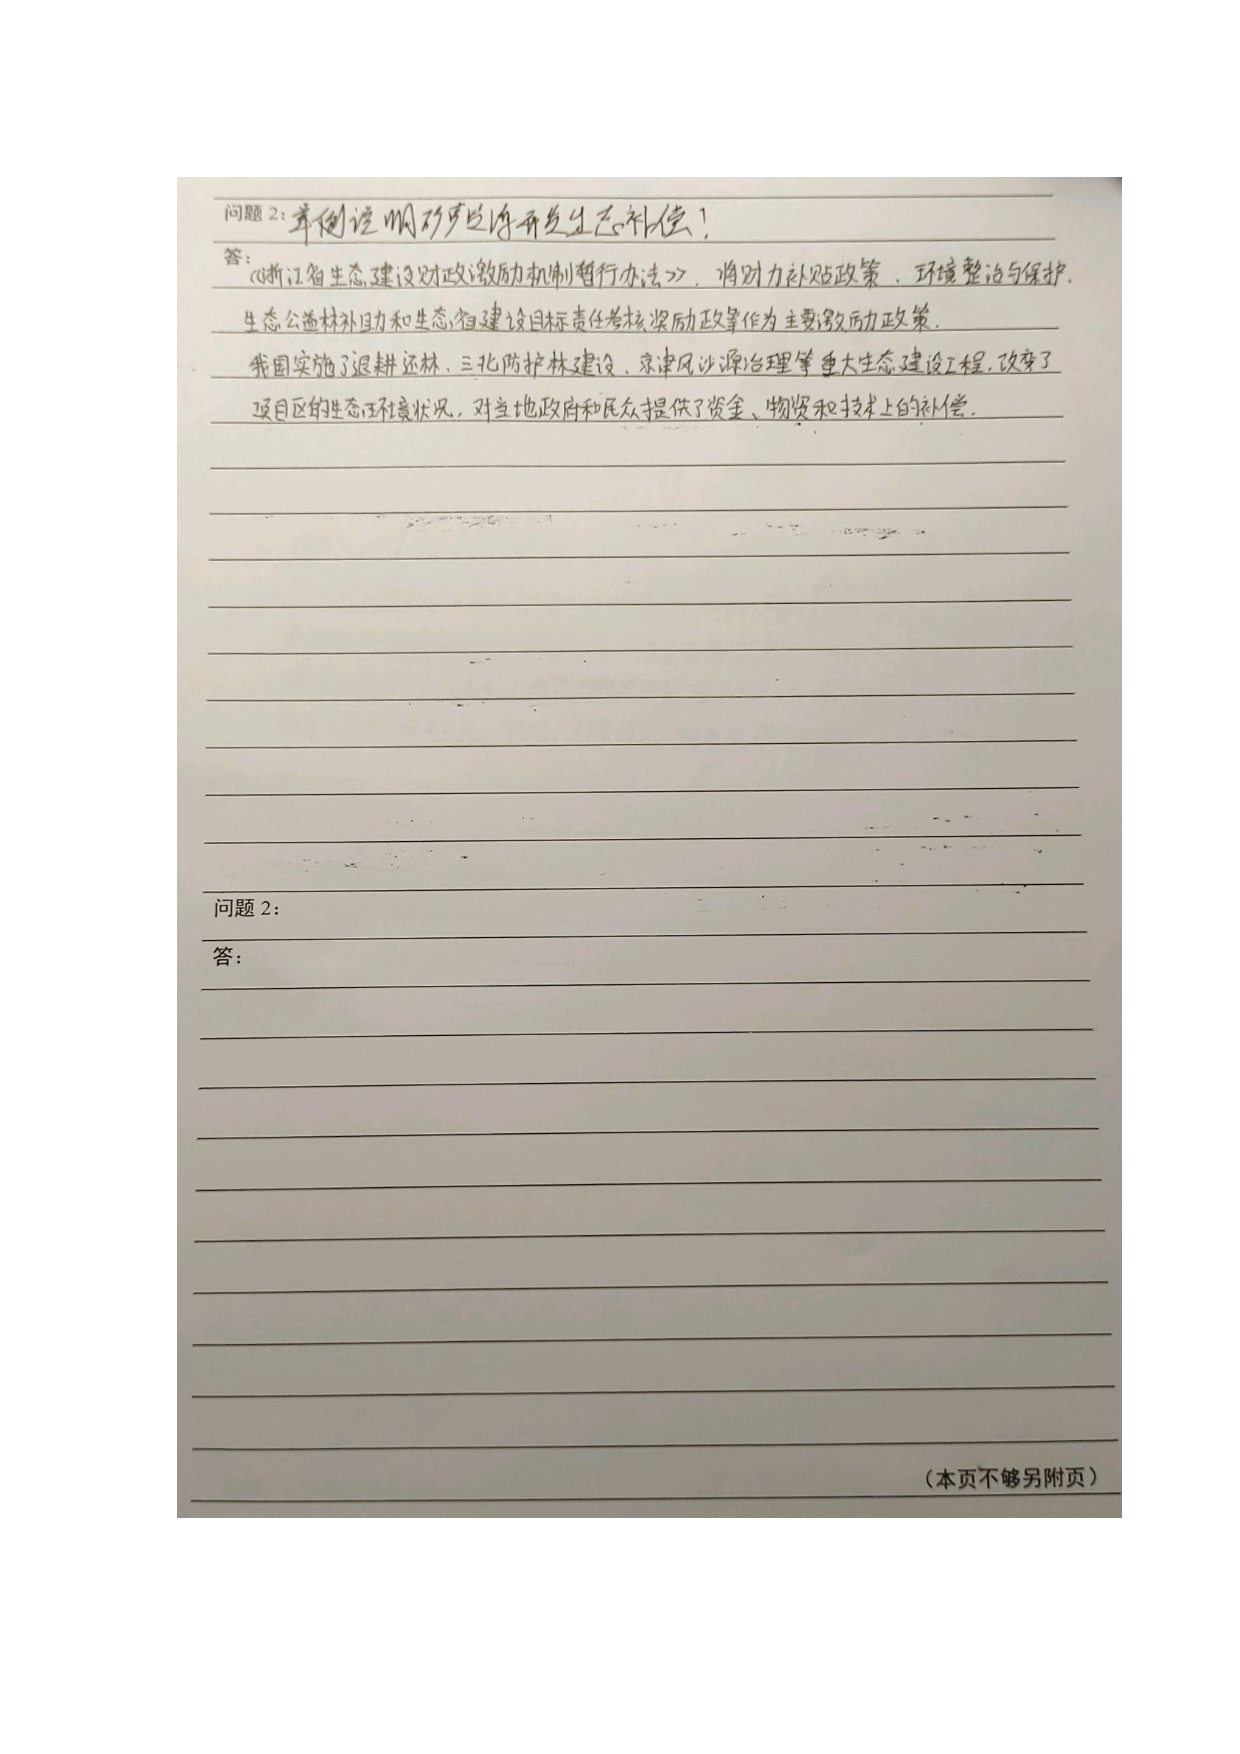 问题 2：举例说明矿产资源开发生态补偿！
答：《浙江省生态建设财政激励机制暂行办法》，将财力补贴政策、环境整治与保护、
生态公益林补助和生态省建设目标责任考核奖励政策等作为主要激励政策.
我国实施了退耕还林、三北防护林建设、京津风沙源治理等重大生态建设工程,改变了
项目区的生态环境状况，对当地政府和民众提供了资金、物资和技术上的补偿.
问题 2：
答：
（本页不够另附页）